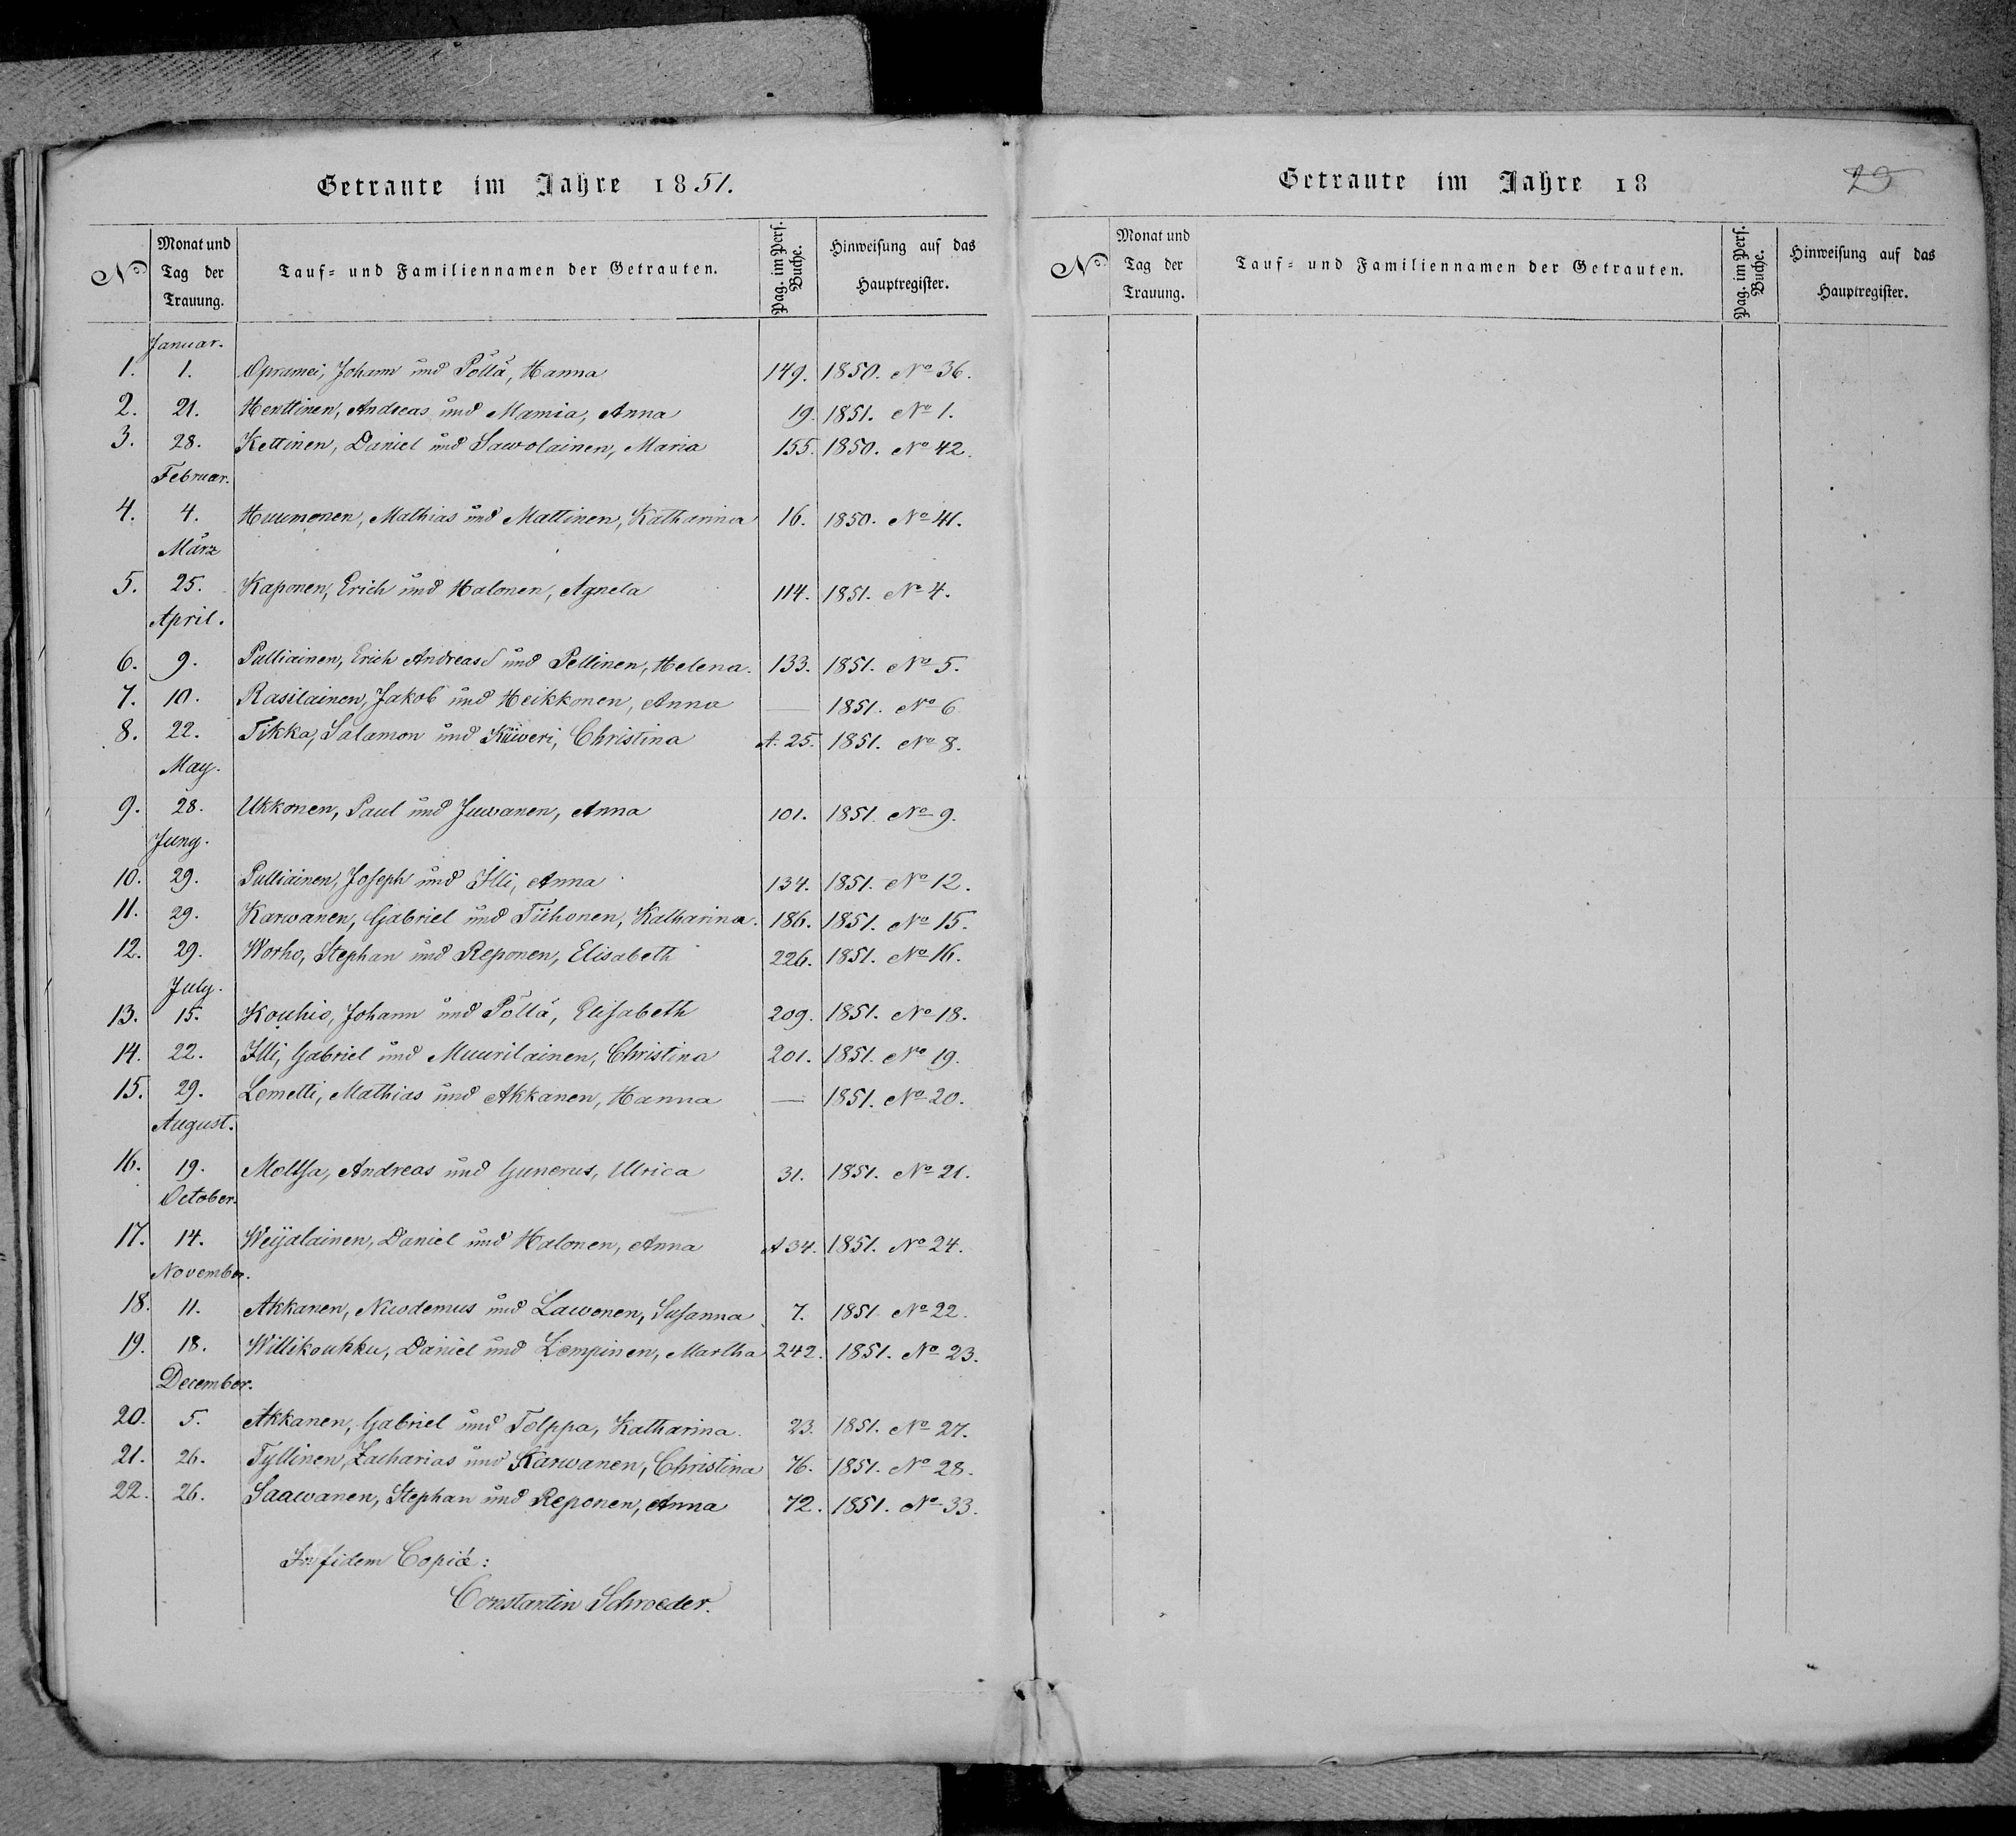 Getraute im Jahre 1851.
No. Monat und Tag der Trauung. Tauf- und Familiennamen der Getrauten. Pag. im Pers. Buche. Hinweisung auf das Hauptregister.
Januar.
1. 1. Opramei, Johann und Pöllä, Hanna 149. 1850. No 36.
2. 21. Henttinen, Andreas und Mamia, Anna 19. 1851. No 1.
3. 28. Kettinen, Daniel und Sawolainen, Maria 155. 1850. No 42.
Februar.
4. 4. Huumonen, Mathias und Mattinen, Katharina 16. 1850. No 41.
März
5. 25. Kaponen, Erich und Halonen, Agneta 114. 1851. No 4.
April.
6. 9. Pulliainen, Erich Andreas und Pellinen, Helena. 133. 1851. No 5.
7. 10. Rasilainen, Jakob und Heikkonen, Anna — 1851. No 6
8. 22. Tikka, Salamon und Kiiweri, Christina A. 25. 1851. No 8.
May.
9. 28. Ukkonen, Paul und Juwanen, Anna 101. 1851. No 9.
Juny.
10. 29. Pulliainen, Joseph und Illi, Anna 134. 1851. No 12.
11. 29. Karwanen, Gabriel und Tiihonen, Katharina. 186. 1851. No 15.
12. 29. Worho, Stephan und Reponen, Elisabeth 226. 1851. No 16.
July.
13. 15. Kouhio, Johann und Pöllä, Elisabeth 209. 1851. No 18.
14. 22. Illi, Gabriel und Muurilainen, Christina 201. 1851. No 19.
15. 29. Lemetti, Mathias und Akkanen, Hanna — 1851. No 20.
August.
16. 19. Moltsa, Andreas und Gunerus, Ulrica 31. 1851. No 21.
October.
17. 14. Weijalainen, Daniel und Halonen, Anna A 34. 1851. No 24.
November.
18. 11. Akkanen, Nicodemus und Lawonen, Susanna 7. 1851. No 22.
19. 18. Willikoukku, Daniel und Lempinen, Martha 242. 1851. No 23.
December.
20. 5. Akkanen, Gabriel und Tolppa, Katharina. 23. 1851. No 27.
21. 26. Tyllinen, Zacharias und Karwanen, Christina 76. 1851. No 28.
22. 26. Saawanen, Stephan und Reponen, Anna 72. 1851. No 33.
In fidem Copiæ:
Constantin Schroeder.
Getraute im Jahre 18
25
No. Monat und Tag der Trauung. Tauf- und Familiennamen der Getrauten. Pag. im Pers. Buche. Hinweisung auf das Hauptregister.